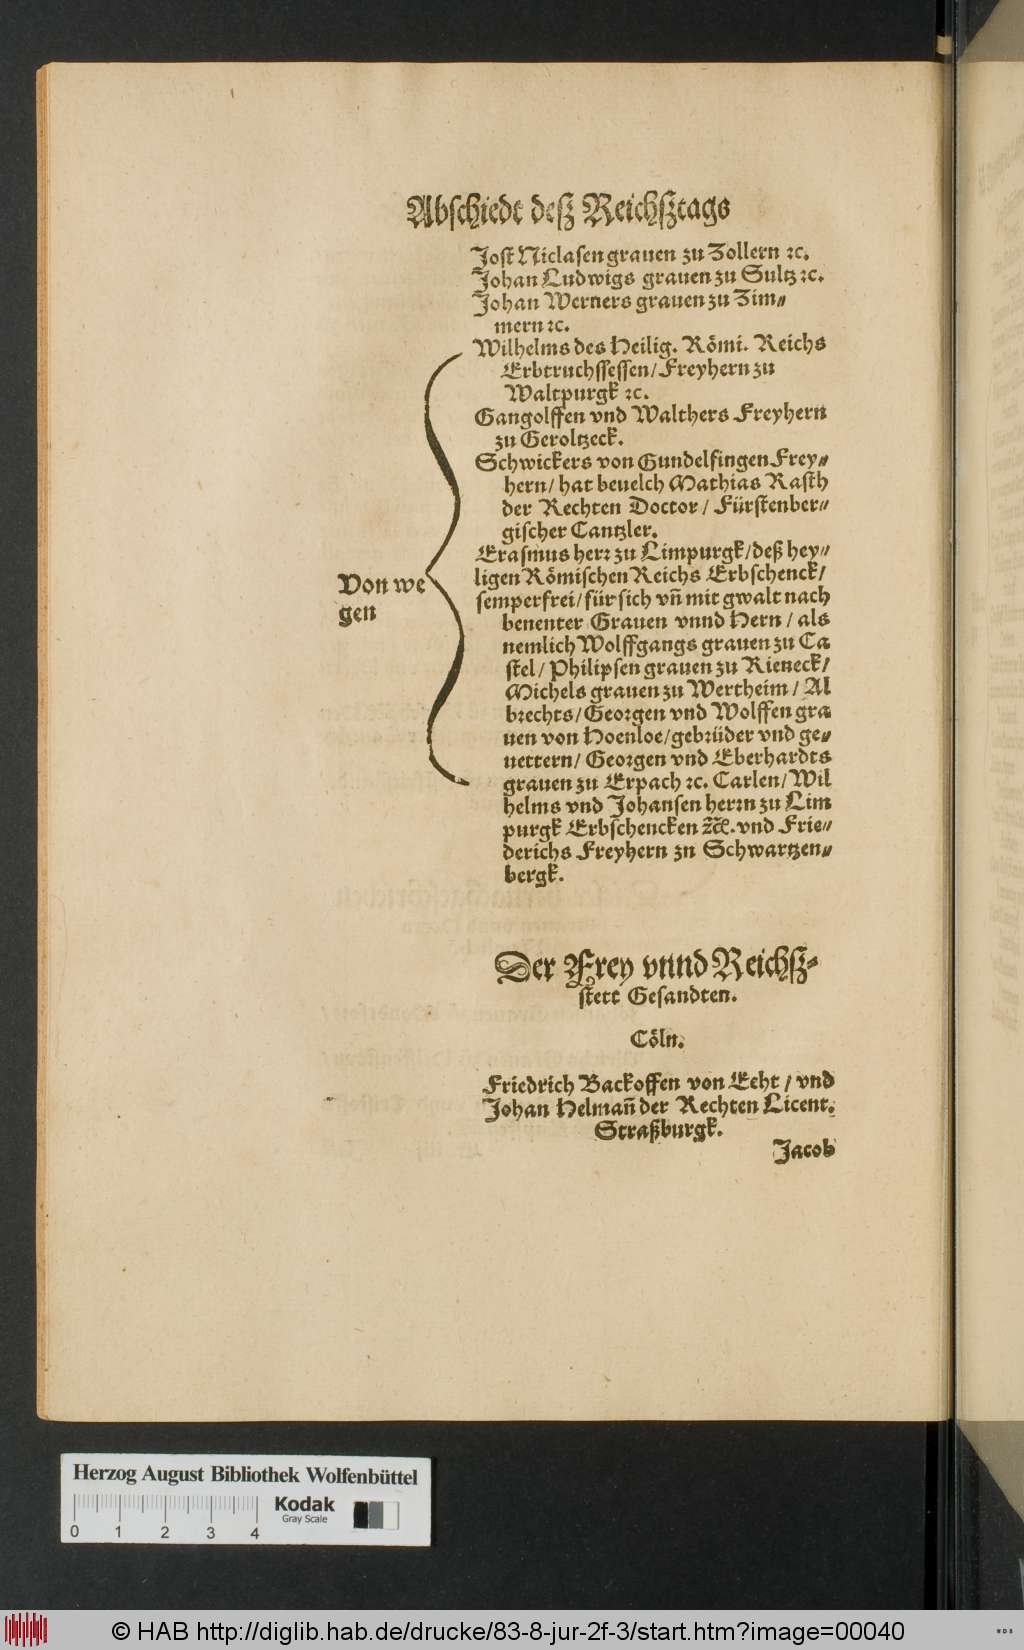 Abschiedt deß Reichßtags
Jost Niclasen grauen zu Zollern ꝛc.
Johan Ludwigs grauen zu Sultz ꝛc.
Johan Werners grauen zu Zim⸗
mern ꝛc.
Wilhelms des Heilig. Römi. Reichs
Erbtruchssessen/ Freyhern zu
Waltpurgk ꝛc.
Gangolffen vnd Walthers Freyhern
zu Geroltzeck.
Schwickers von Gundelfingen Frey⸗
hern/ hat beuelch Mathias Rasth
der Rechten Doctor / Fürstenber⸗
gischer Cantzler.
Von we
gen
Erasmus herꝛ zu Limpurgk/ deß hey⸗
ligen Römischen Reichs Erbschenck/
semperfrei/ für sich vñ mit gwalt nach
benenter Grauen vnnd Hern / als
nemlich Wolffgangs grauen zu Ca
stel/ Philipsen grauen zu Rieneck/
Michels grauen zu Wertheim / Al
brechts/ Georgen vnd Wolffen gra
uen von Hoenloe/ gebrüder vnd ge⸗
uettern/ Georgen vnd Eberhardts
grauen zu Erpach ꝛc. Carlen/ Wil
helms vnd Johansen herrn zu Lim
purgk Erbschencken ꝛc. vnd Frie⸗
derichs Freyhern zn Schwartzen⸗
bergk.
Der Frey vnnd Reichß⸗
stett Gesandten.
Cöln.
Friedrich Backoffen von Echt / vnd
Johan Helmañ der Rechten Licent.
Straßburgk.
Jacob
Herzog August Bibliothek Wolfenbüttel
Kodak
Gray Scale
0 1 2 3 4
© HAB http://diglib.hab.de/drucke/83-8-jur-2f-3/start.htm?image=00040